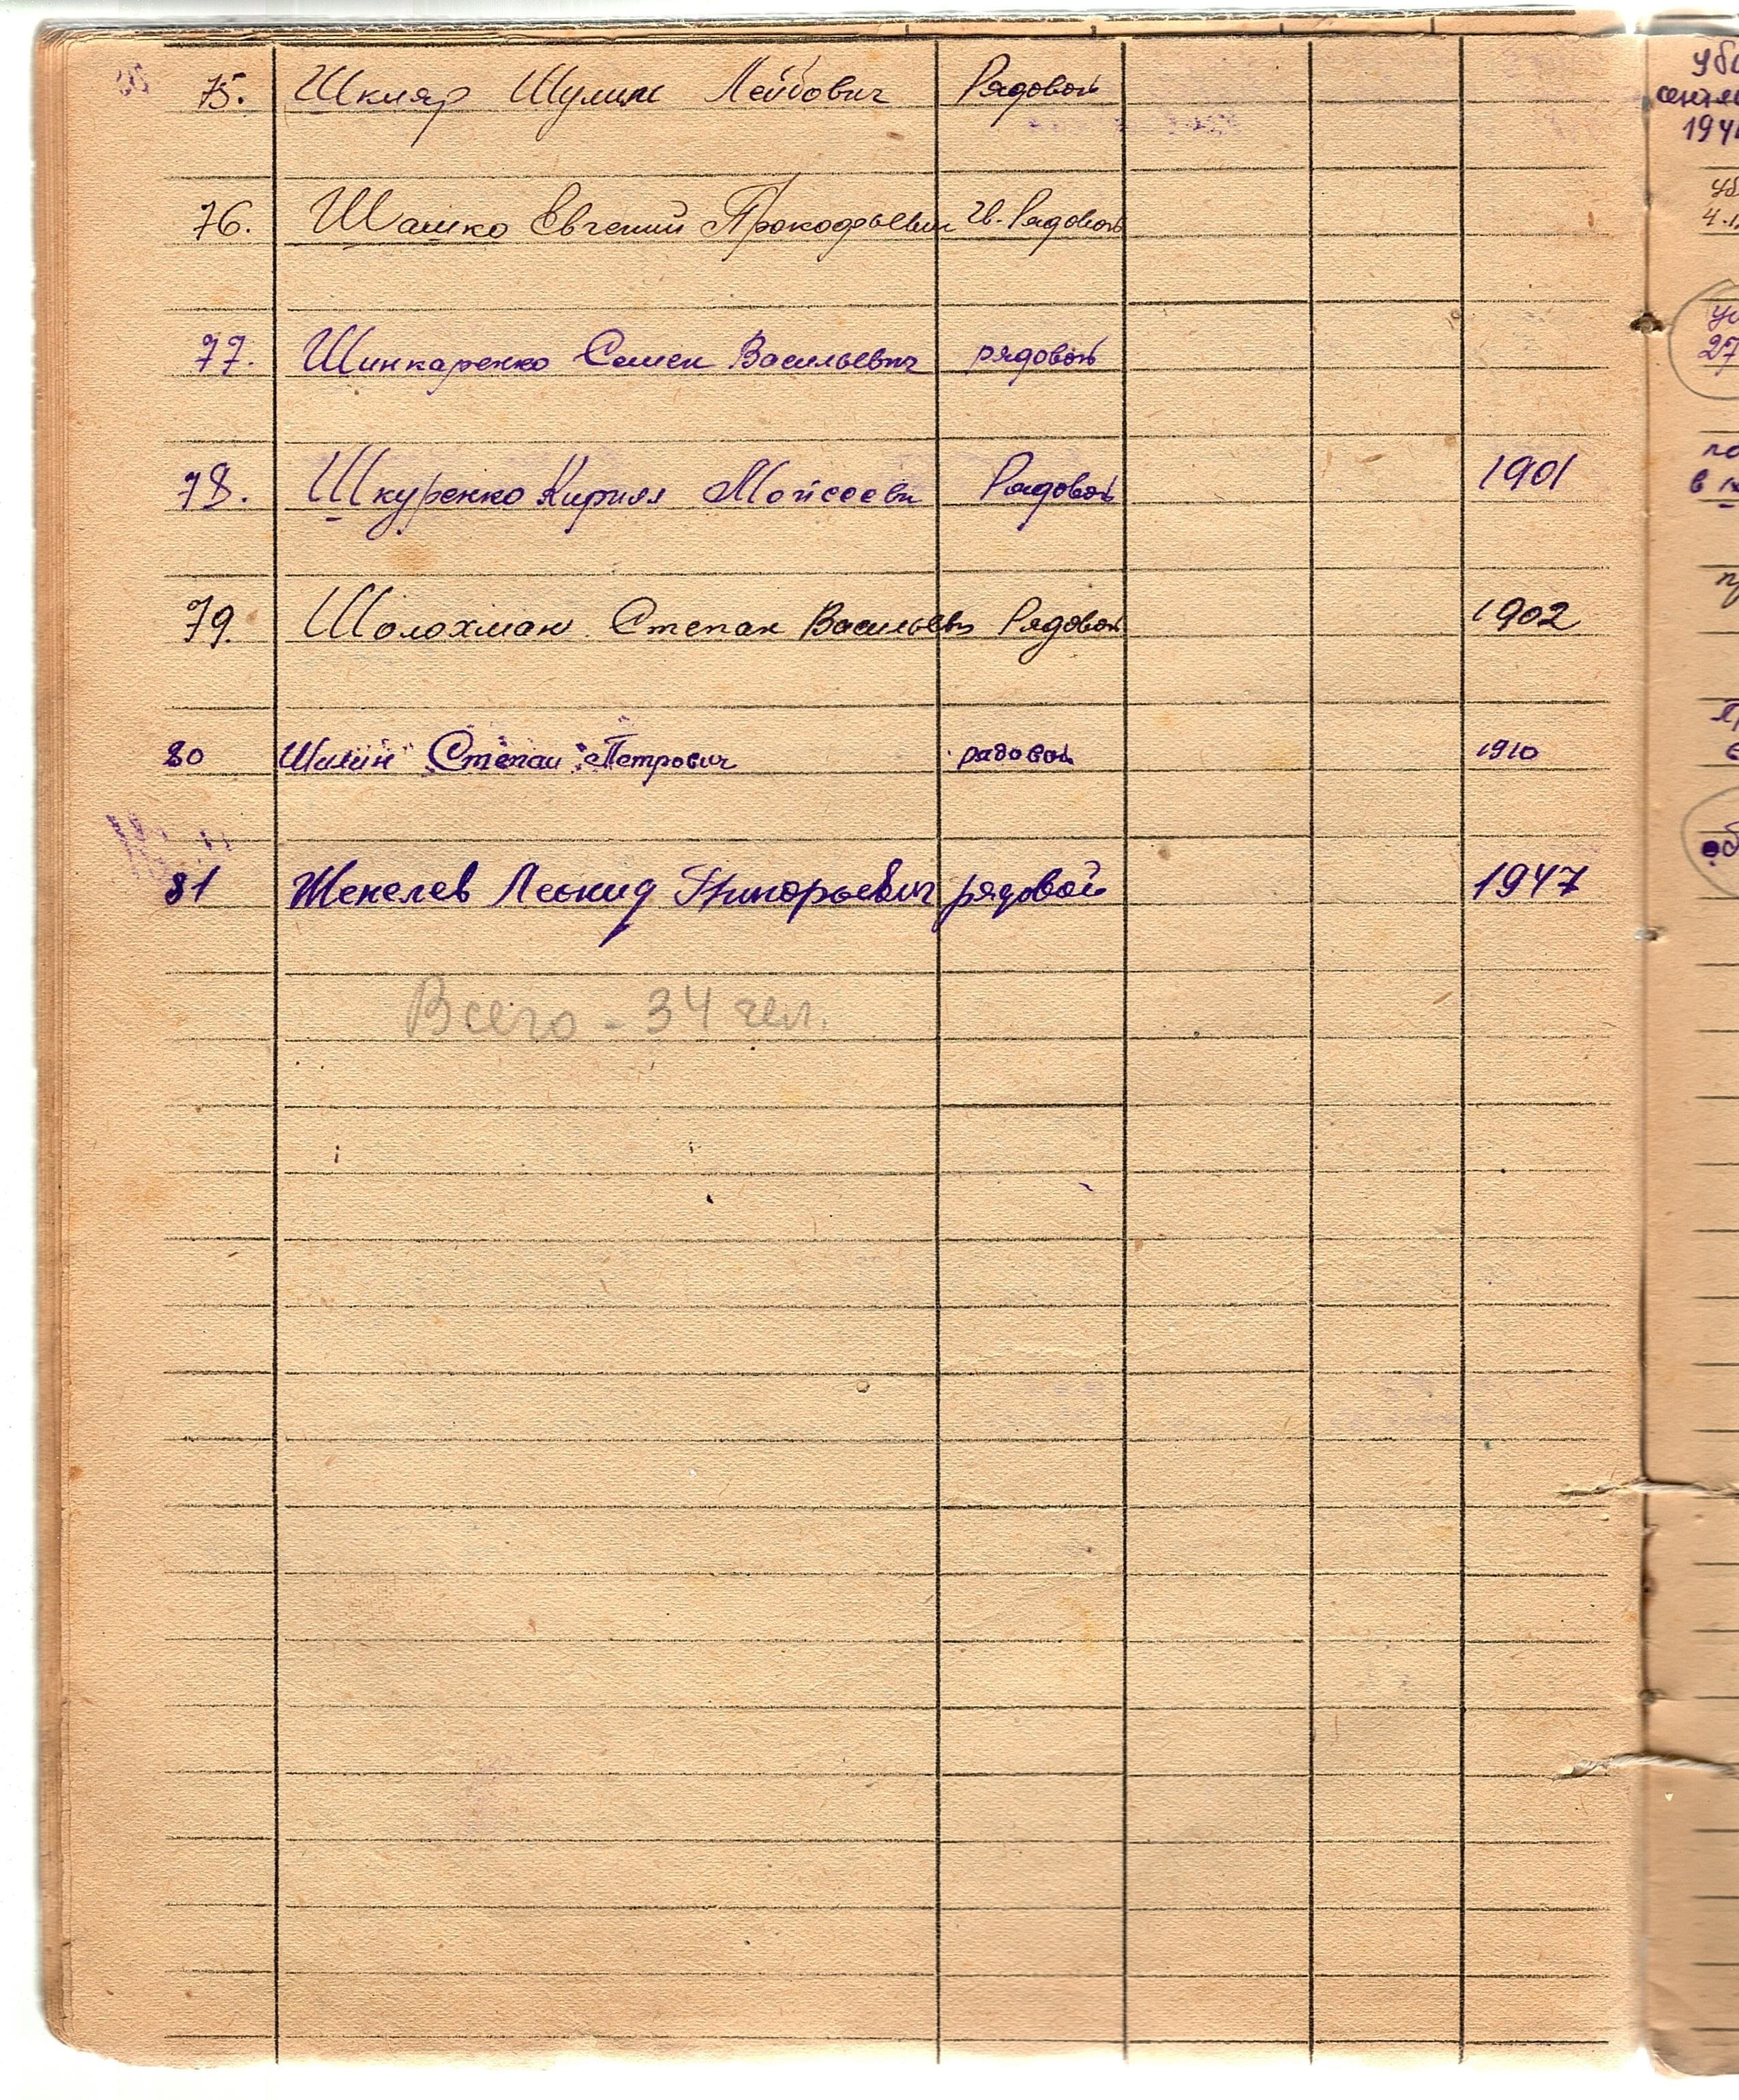 75. Шкляр Шулим Лейбович Рядовой
76. Шашко Евгений Прокофьевич Гв. Рядовой
77. Шинкаренко Семен Васильевич рядовой
78. Шкуренко Кирилл Мойсееви Рядовой 1901
79. Шолохман Степан Васильев Рядовой 1902
80 Степан Петрович рядовой 1910
81 Леонид Григорьевич рядовой 1947
Всего - 34 чел.